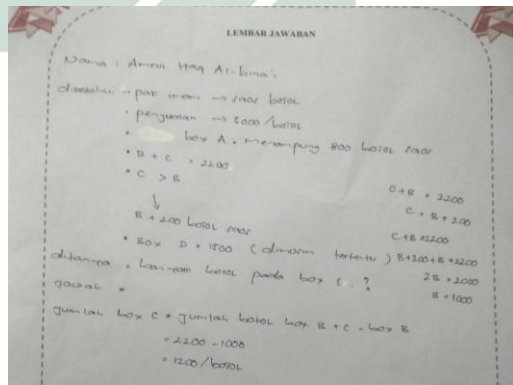 LEMBAR JAWABAN
Nama : Amrin Haq Al-bina'i
diketahui : • pak imam → saos botol
• penjualan → 8000 / botol
• box A • menampung 800 botol saos
• B + C = 2200
• C > B
↓
B + 200 botol saos
• Box D = 1500 ( dimusim tertentu )
C+B = 2200
C = B + 200
C+B = 2200
B+200+B = 2200
2B = 2000
B = 1000
ditanya • banyak botol pada box C ?
jawab •
Jumlah box C = jumlah botol box B + C - box B
= 2200 - 1000
= 1200 / botol